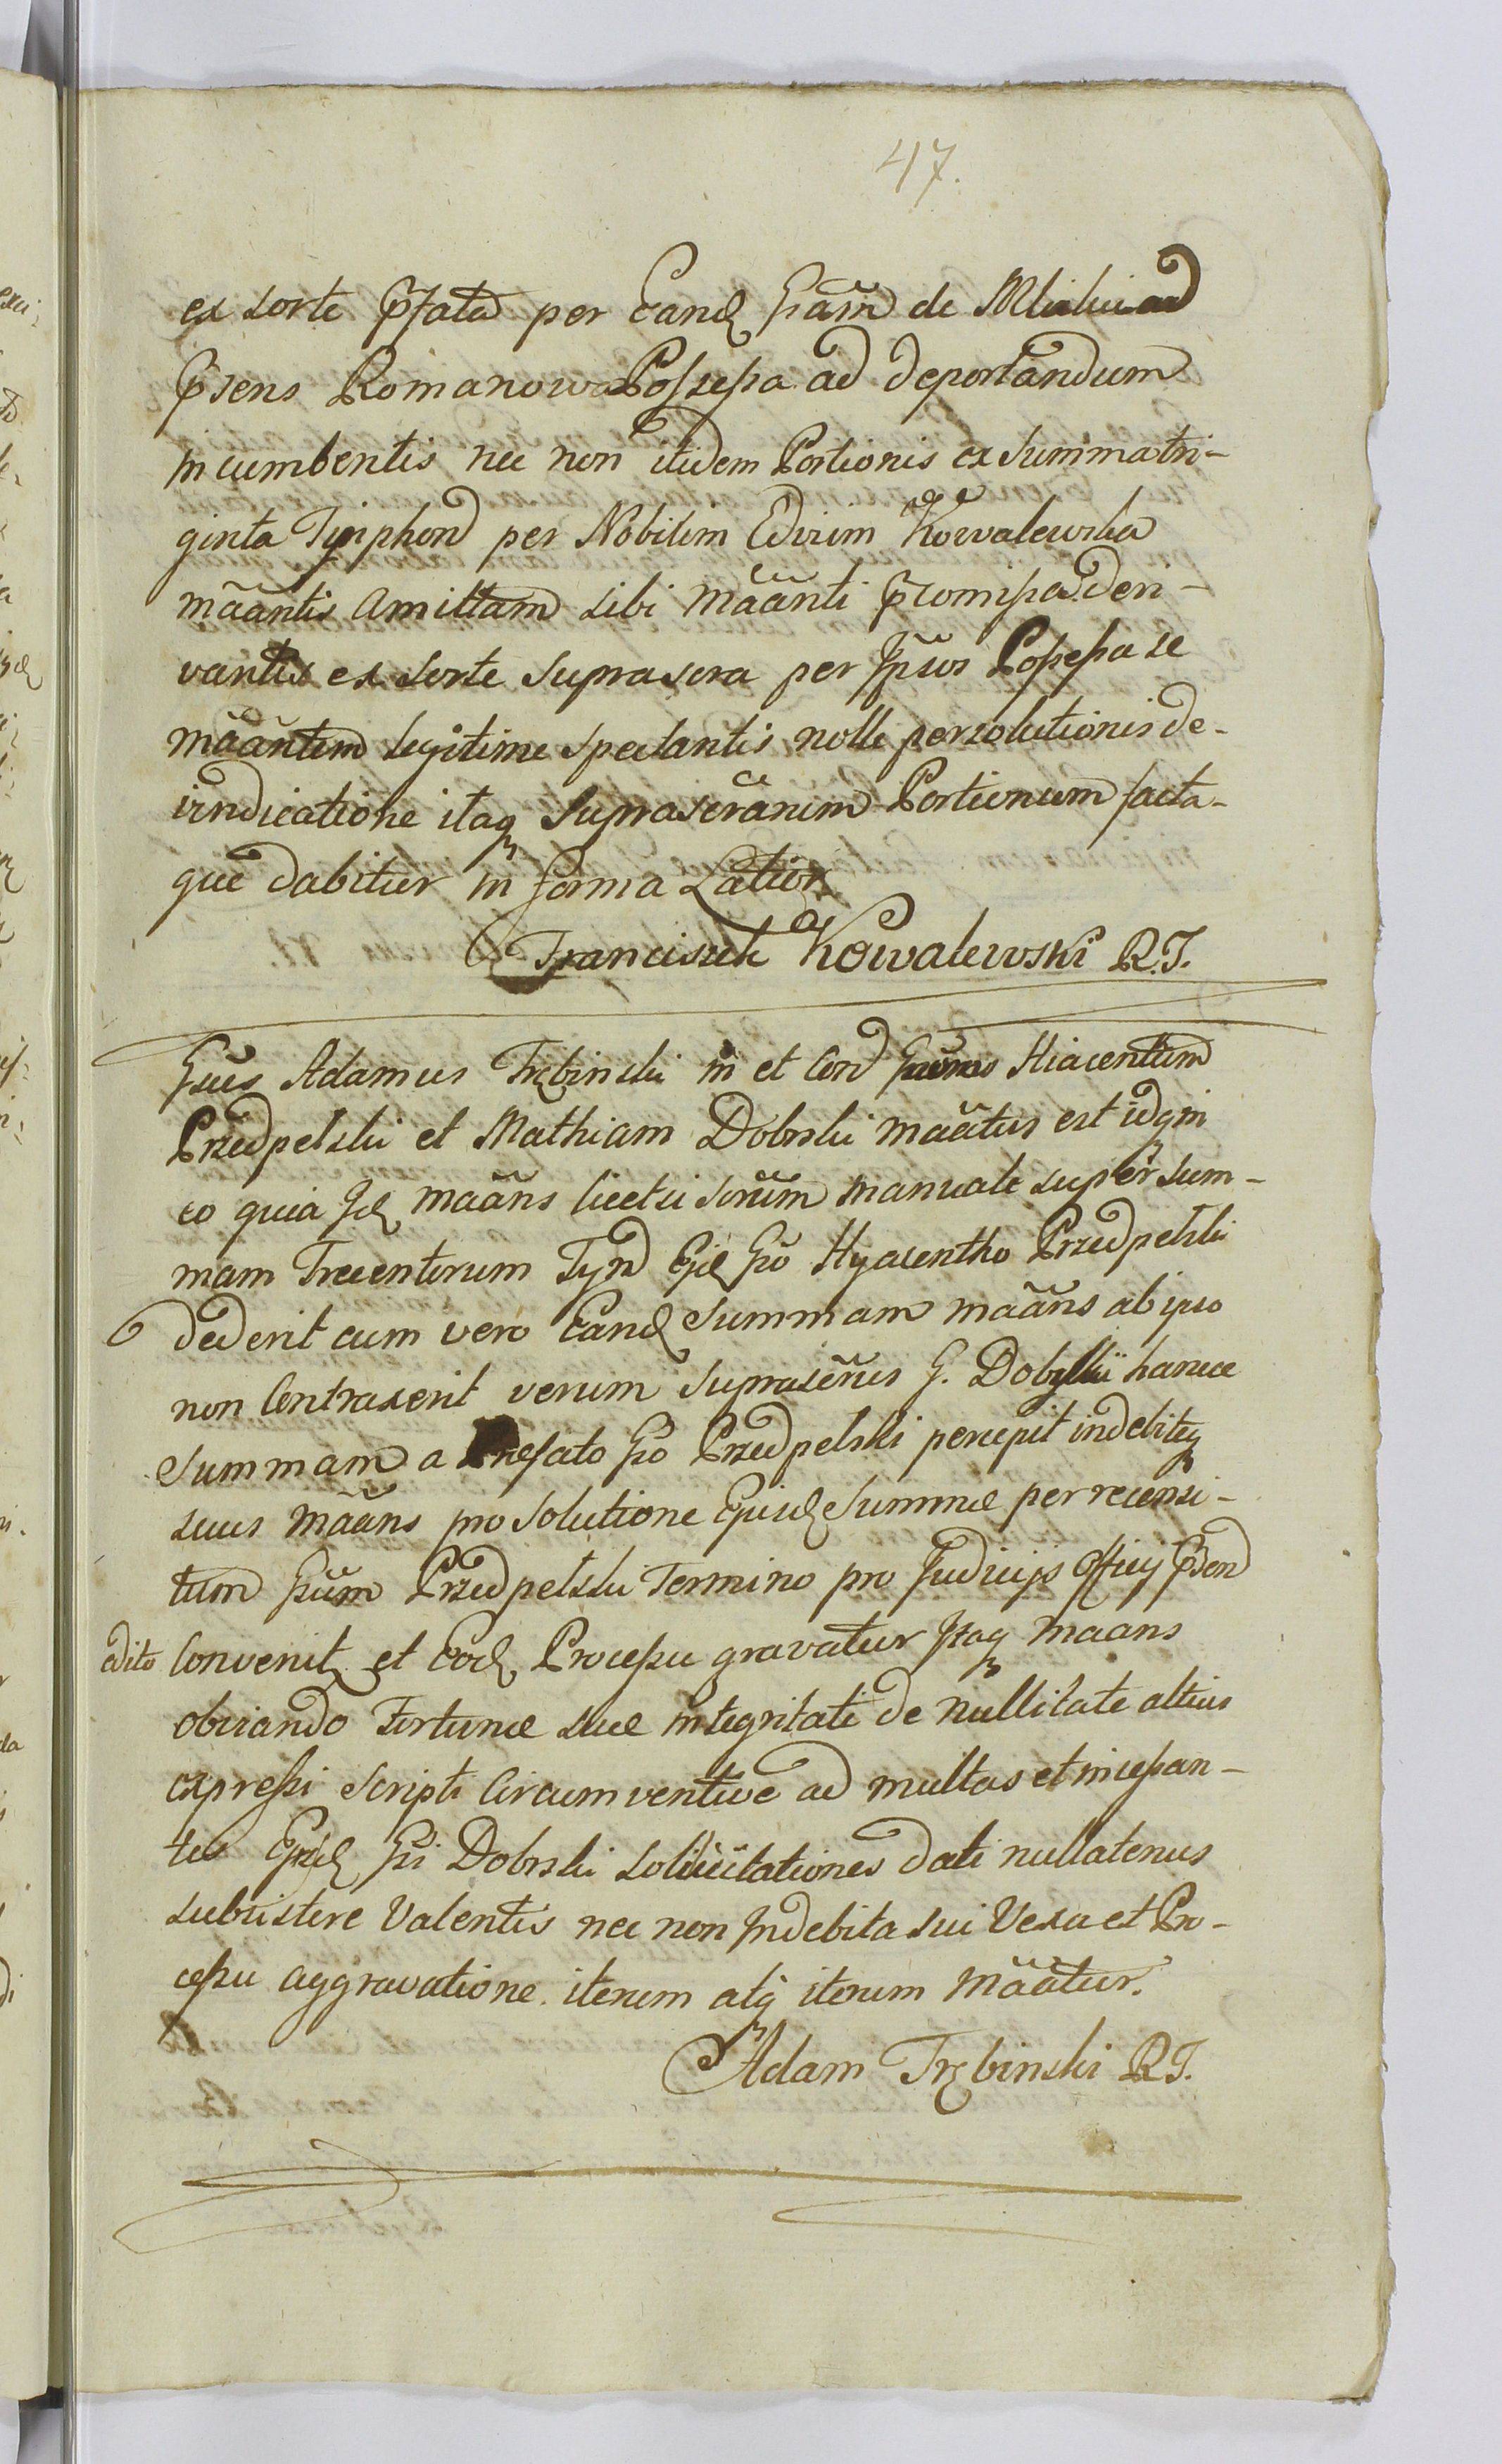 47.
ex sorte Pfata per Eand Gnam de Mliski ad
Psens Romanowa Possessa ad deportandum
incumbentis nec non itidem Portionis ex Summa tri-
ginta Tymphon per Nobilem Kowalewska
mãantis Amittam sibi mãanti promissa deri-
vantis ex sorte suprascra per Possessa se
mãantem legitime spectantis nolle persolutionis de-
vindicatione itaq suprascranim Portionum facta-
que dabitur in forma Latiori
Franciszek Kowalewski R.T.
Gsus Adamus Trębinski in et Con Hiacentum
Przedpelski et Mathiam Dobrski mãatus est idqm
eo quia Id mãans licet sui scrium manuale super sum-
mam Trecentorum Tyn Gso Hyacentho Przedpelski
dederit cum vero Eand Summam mãans ab ipso
non Contraxerit verum suprascrus G. Dobrski hance
Summam a Prefato Gso Przedpelski percepit indebiteq
suus mãans pro solutione Ejusd Summae per recensi-
tum Gsum Przedpelski Termino pro Judicijs Officij Psen
edito Convenit et Eod Processu gravatur Itaq maans
obviando Fortunae suae integritati de nullitate altius
expressi Scripti Circumventive ad multas et incessan-
tes Gsi Dobrski sollicitationes dati nullatenus
subsistere Valentis nec non Indebita sui Vexa et Pro-
cessu aggravatione iterum atq iterum mãatur.
Adam Trębinski R.T.